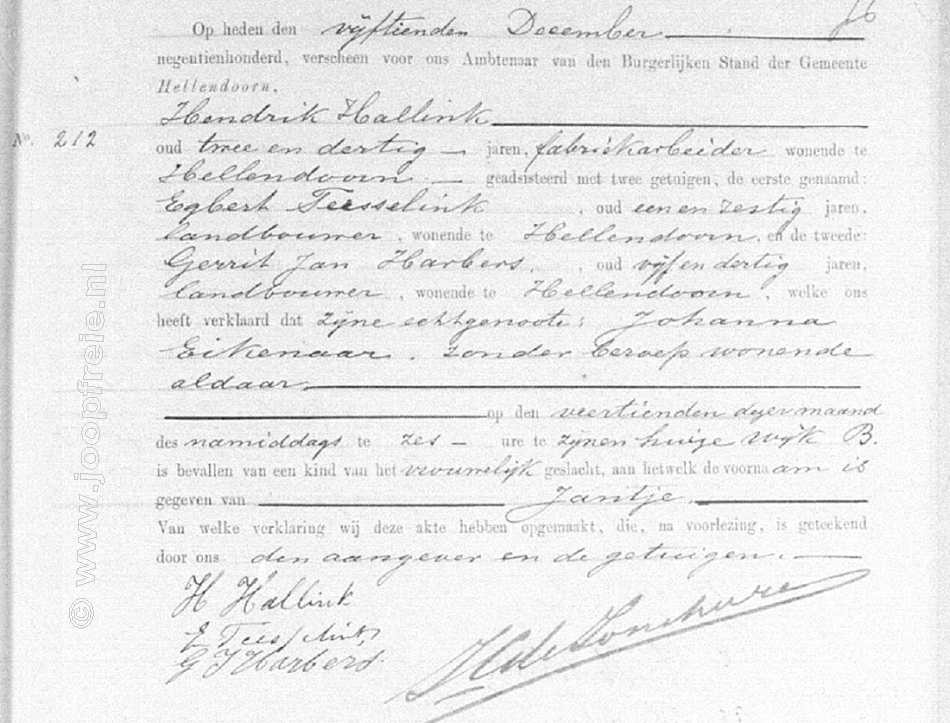 16
Op heden den vijftienden December
negentienhonderd, verscheen voor ons Ambtenaar van den Burgerlijken Stand der Gemeente
Hellendoorn,
Hendrik Hallink
No. 212
oud twee en dertig jaren, fabriekarbeider wonende te
Hellendoorn geadsisteerd met twee getuigen, de eerste genaamd:
Egbert Teesselink, oud een en zestig jaren,
landbouwer, wonende te Hellendoorn, en de tweede:
Gerrit Jan Harbers, oud vijf en dertig jaren,
landbouwer, wonende te Hellendoorn, welke ons
heeft verklaard dat zijne echtgenoote: Johanna
Eikenaar, zonder beroep wonende
aldaar,
op den veertienden dezer maand
des namiddags te zes ure te zijnen huize wijk B.
is bevallen van een kind van het vrouwelijk geslacht, aan hetwelk de voornaam is
gegeven van Jantje
Van welke verklaring wij deze akte hebben opgemaakt, die, na voorlezing, is geteekend
door ons den aangever en de getuigen.
H Hallink
E Teesselink
G J Harbers
© www.joopfreile.nl